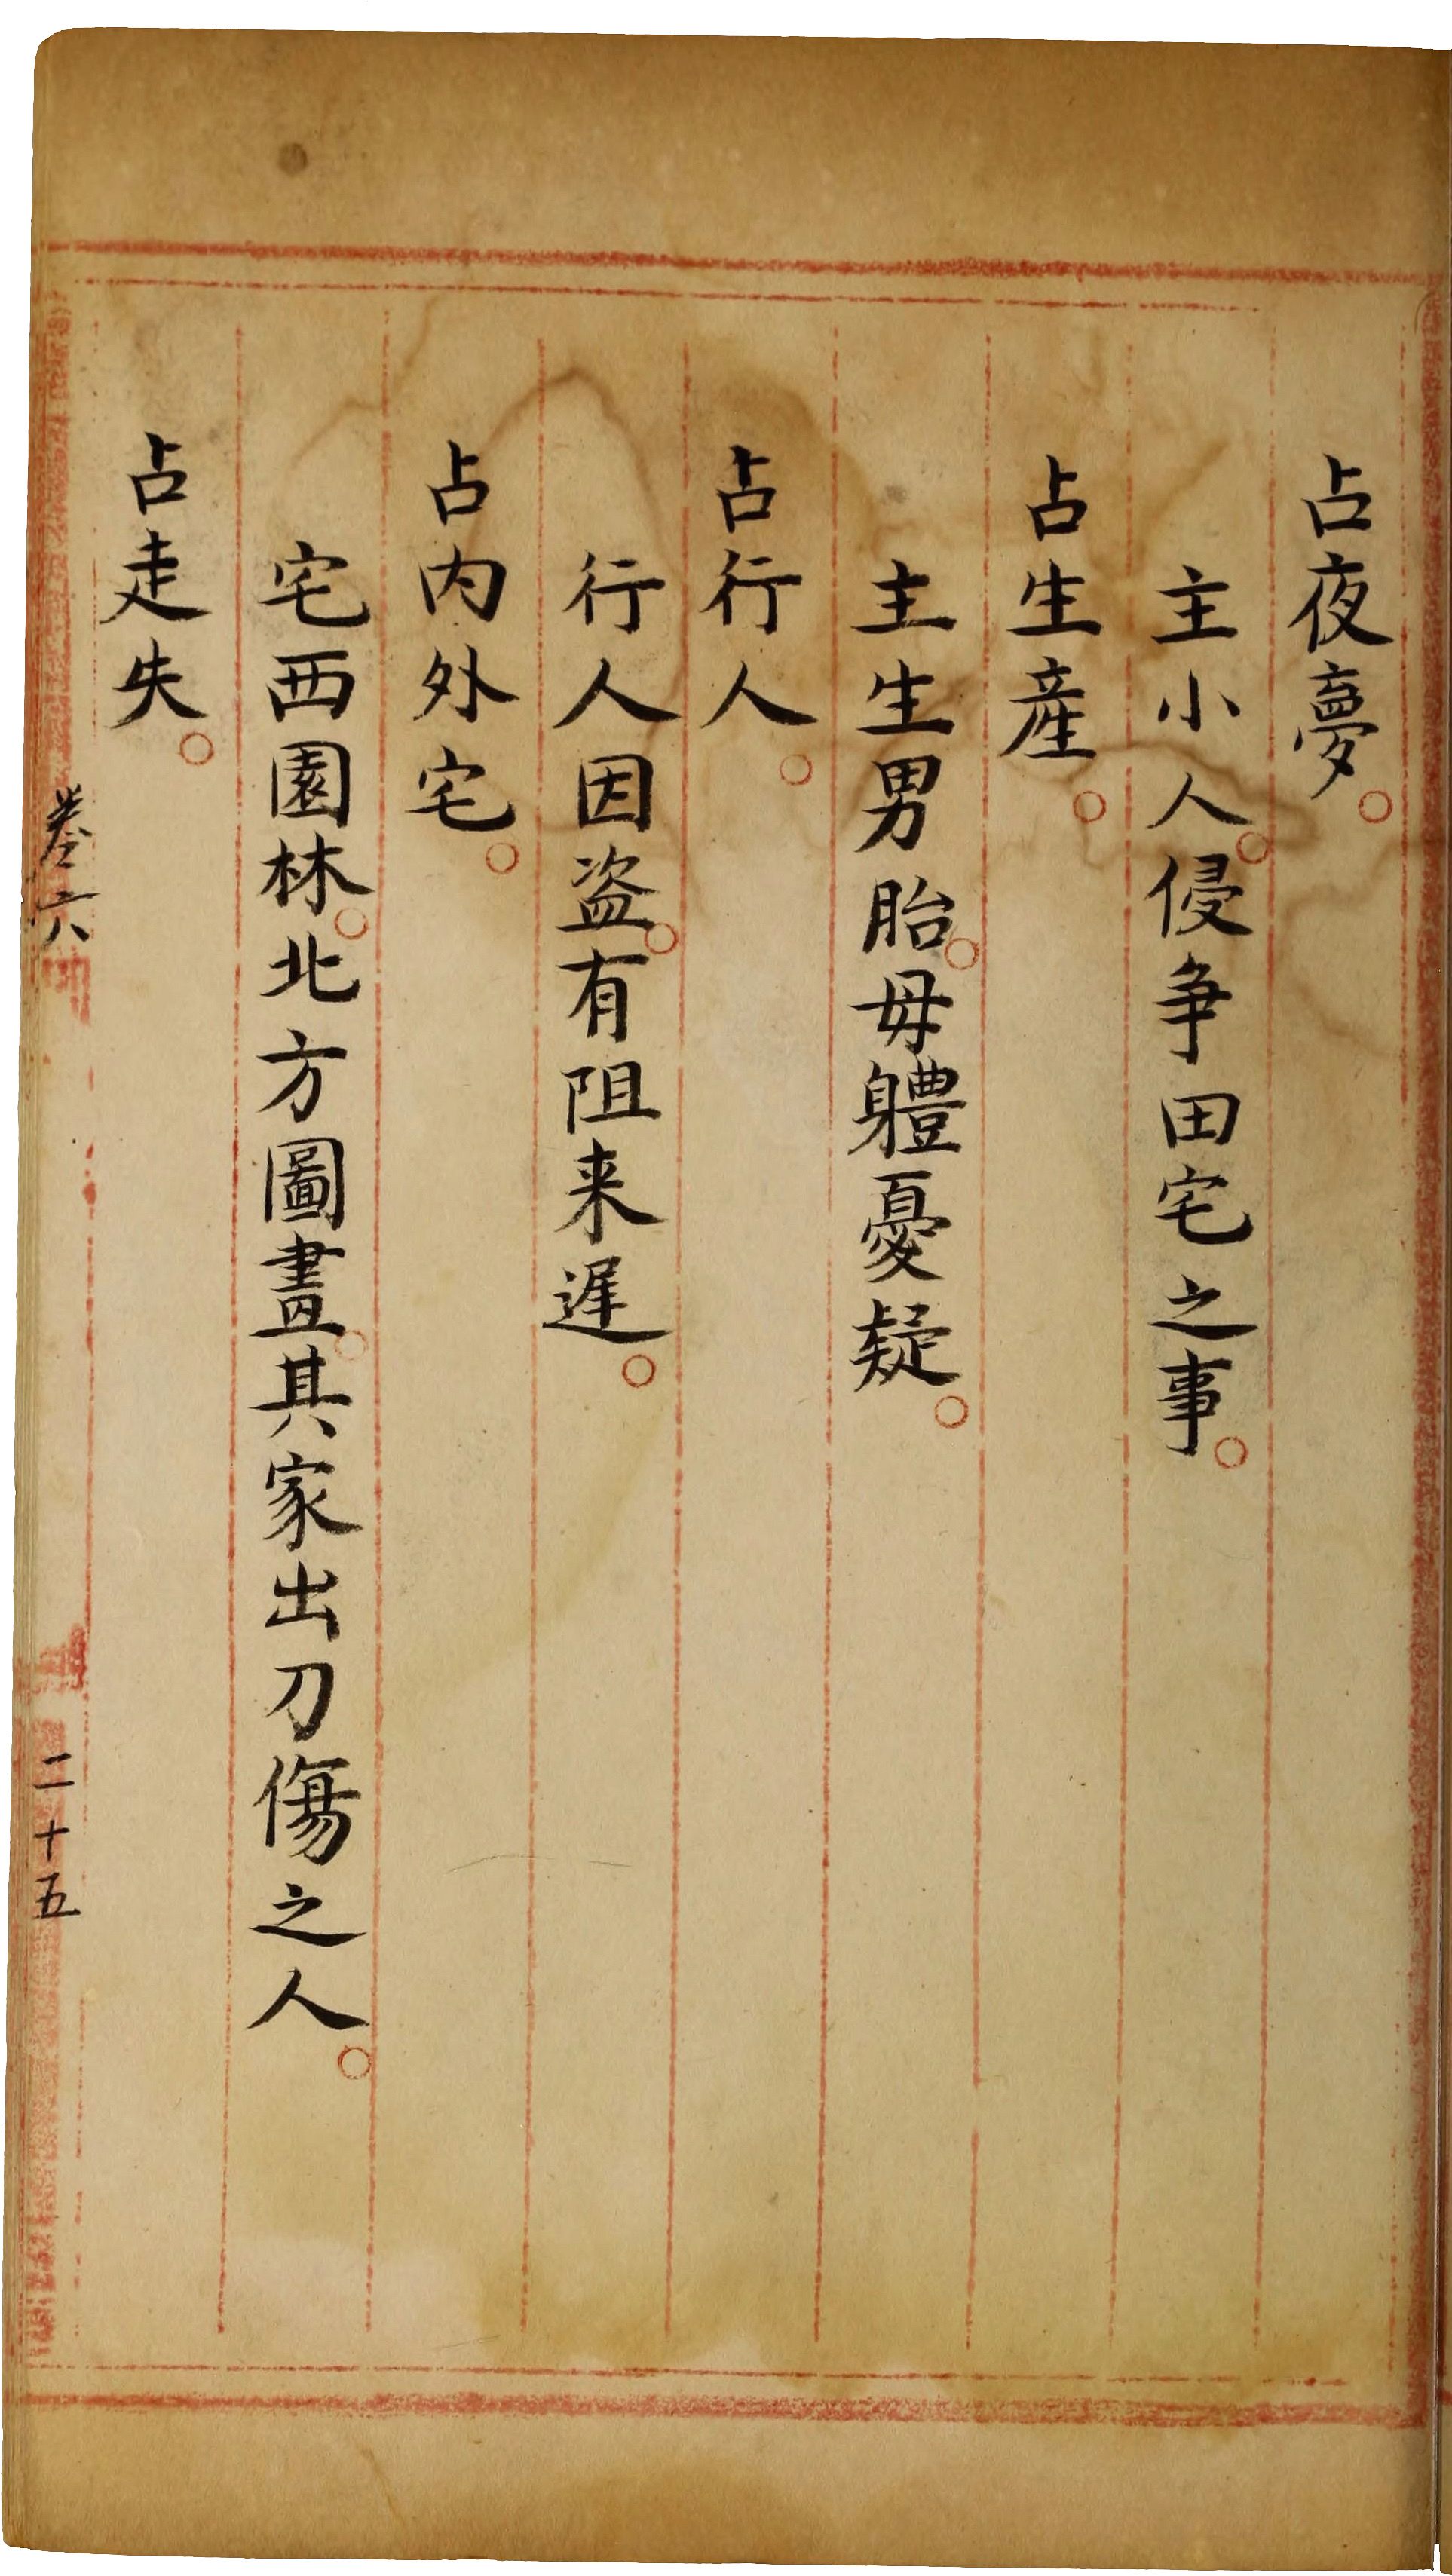 占夜夢。
主小人。侵争田宅之事。
占生產。
主生男胎。母軆憂疑。
占行人。
行人因盗。有阻来遅。
占内外宅。
宅西園林。北方圖畫。其家出刀傷之人。
占走失。
卷六
二十五